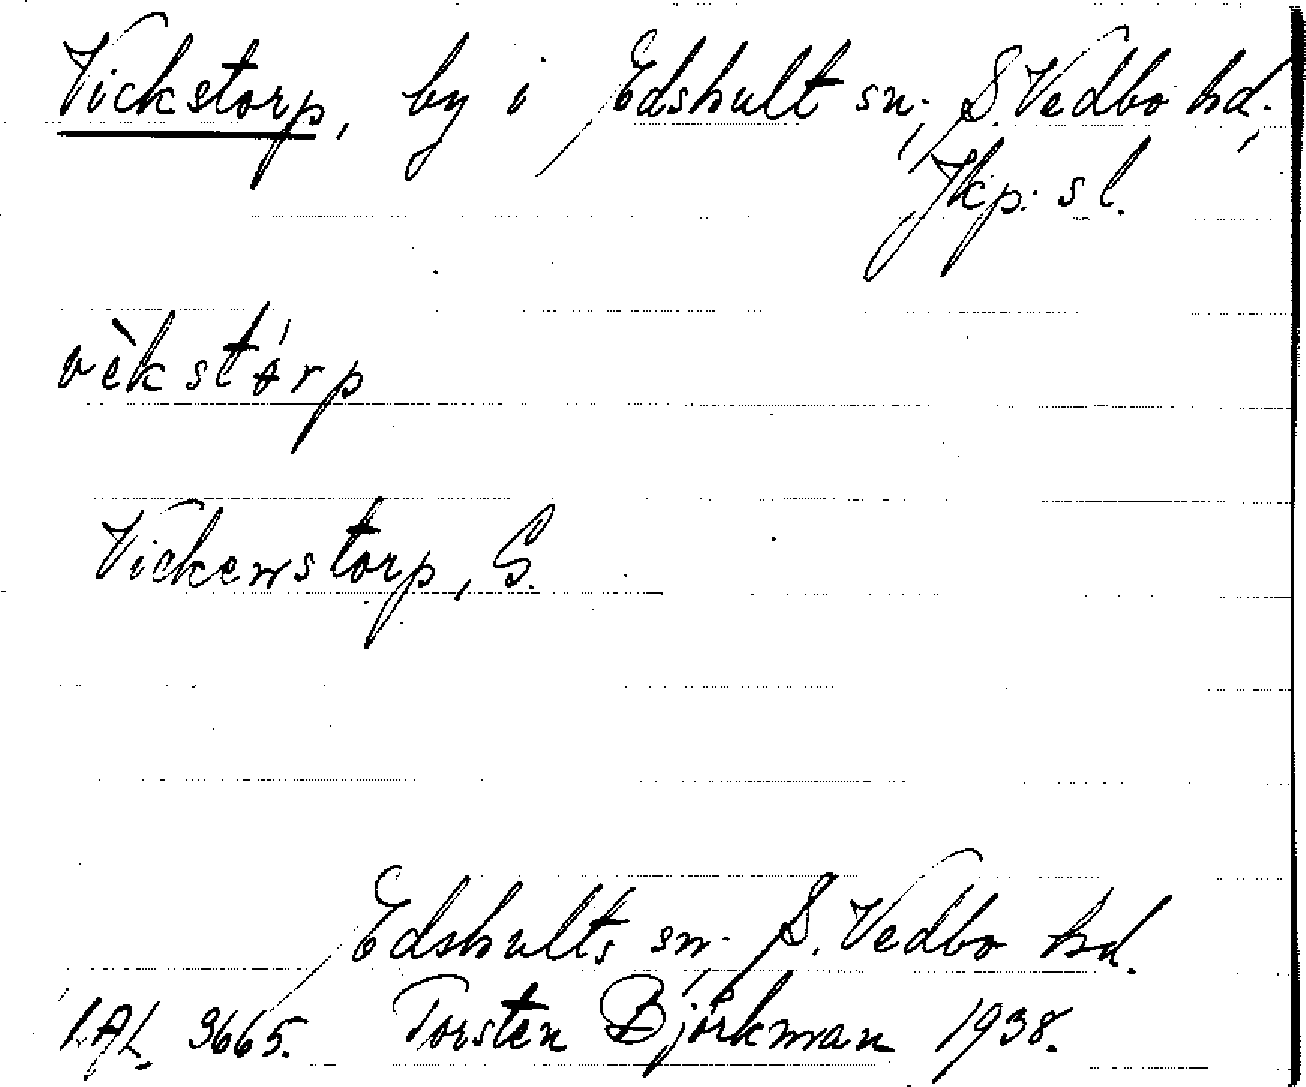 Vickstorp, by i Edshult sn; S. Vedbo hd.;
Jkp: s l.
vèkstórp
Vickenstorp, S.
Edshults sn. S. Vedbo hd.
LAL. 3665. Torsten Björkman 1938.